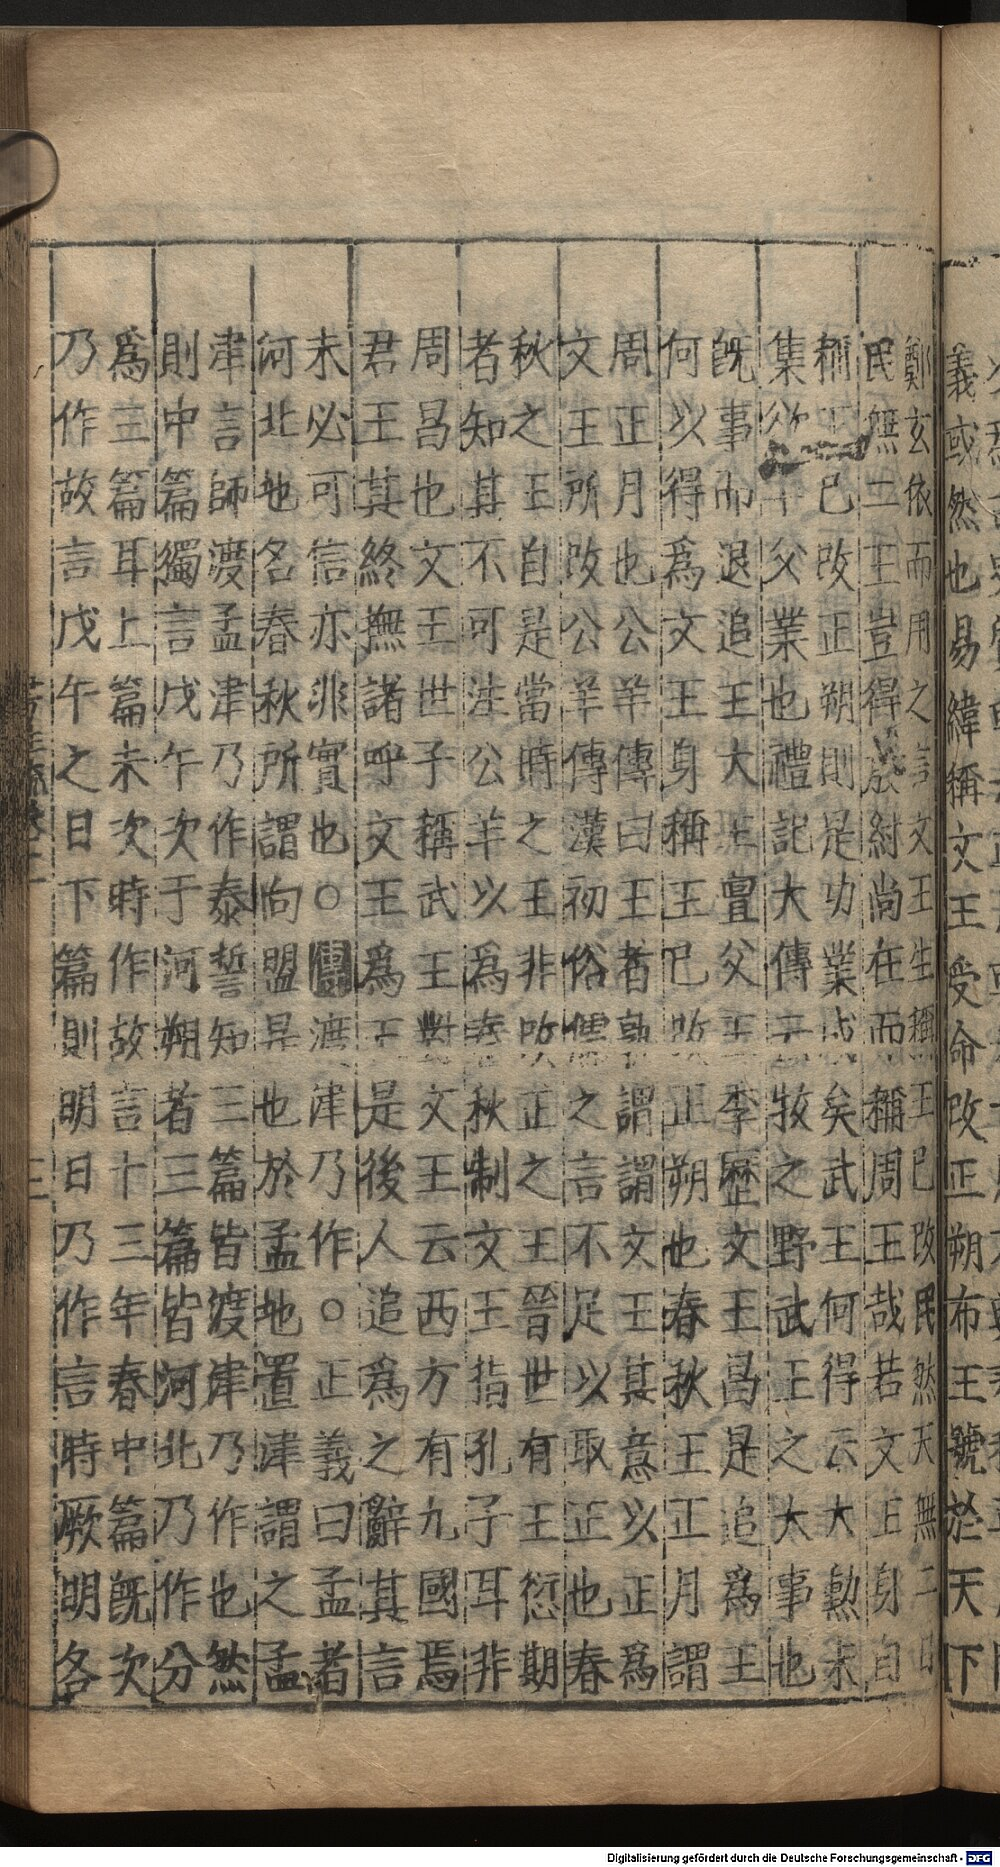 義或然也易緯稱文王受命改正朔布王號於天下
鄭玄依而用之言文王生稱王已改民然天無二日
民無二王豈得殷紂尚在而稱周王哉若文王身自
稱王已改正朔則是功業成矣武王何得云大勳未
集欲卒父業也禮記大傳云牧之野武王之大事也
既事而退追王大王亶父王季歷文王昌是追為王
何以得為文王身稱王已改正朔也春秋王正月謂
周正月也公羊傳曰王者孰謂謂文王其意以正為
文王所改公羊傳漢初俗儒之言不足以取正也春
秋之王自是當時之王非改正之王晉世有王愆期
者知其不可注公羊以為春秋制文王指孔子耳非
周昌也文王世子稱武王對文王云西方有九國焉
君王其終撫諸呼文王為王是後人追為之辭其言
未必可信亦非實也○傳渡津乃作○正義曰孟者
河北地名春秋所謂向盟是也於孟地置津謂之孟
津言師渡孟津乃作泰誓知三篇皆渡津乃作也然
則中篇獨言戊午次于河朔者三篇皆河北乃作分
為三篇耳上篇未次時作故言十三年春中篇既次
乃作故言戊午之日下篇則明日乃作言時厥明各
Digitalisierung gefördert durch die Deutsche Forschungsgemeinschaft - DFG